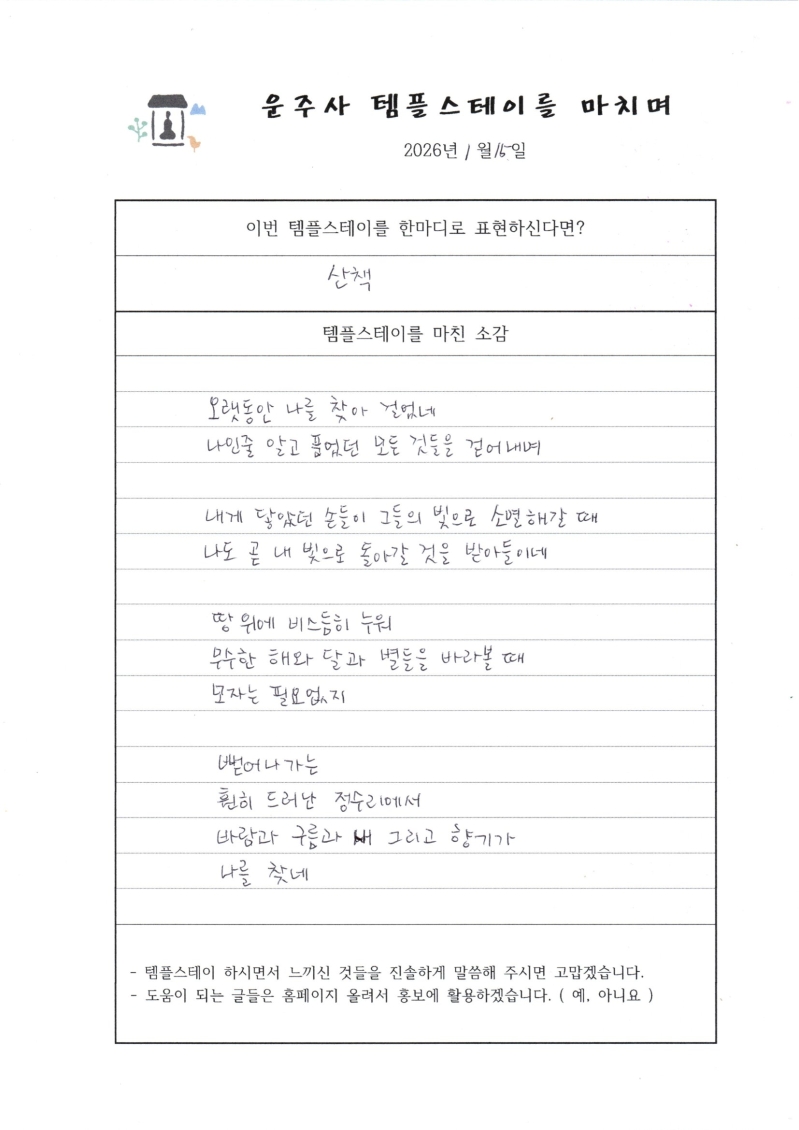 운주사 템플스테이를 마치며
2026년 1월 15일
이번 템플스테이를 한마디로 표현하신다면?
산책
템플스테이를 마친 소감
오랫동안 나를 찾아 걸었네
나인줄 알고 품었던 모든 것들을 걷어내며
내게 닿았던 손들이 그들의 빛으로 소멸해갈 때
나도 곧 내 빛으로 돌아갈 것을 받아들이네
땅 위에 비스듬히 누워
무수한 해와 달과 별들을 바라볼 때
모자는 필요없지
뻗어나가는
훤히 드러난 정수리에서
바람과 구름과 새 그리고 향기가
나를 찾네
- 템플스테이 하시면서 느끼신 것들을 진솔하게 말씀해 주시면 고맙겠습니다.
- 도움이 되는 글들은 홈페이지 올려서 홍보에 활용하겠습니다. ( 예, 아니요 )